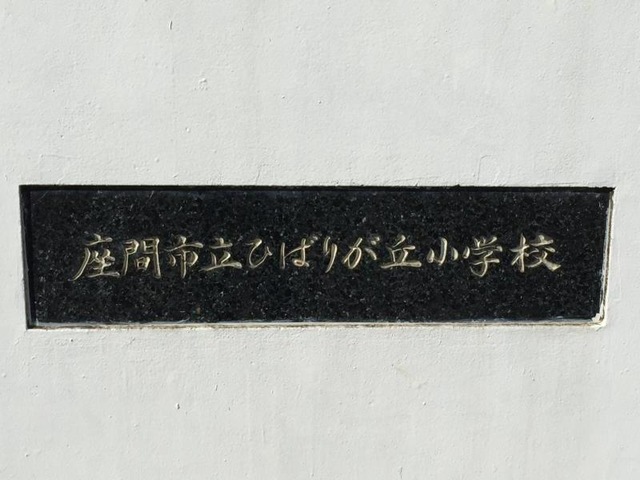 座間市立ひばりが丘小学校